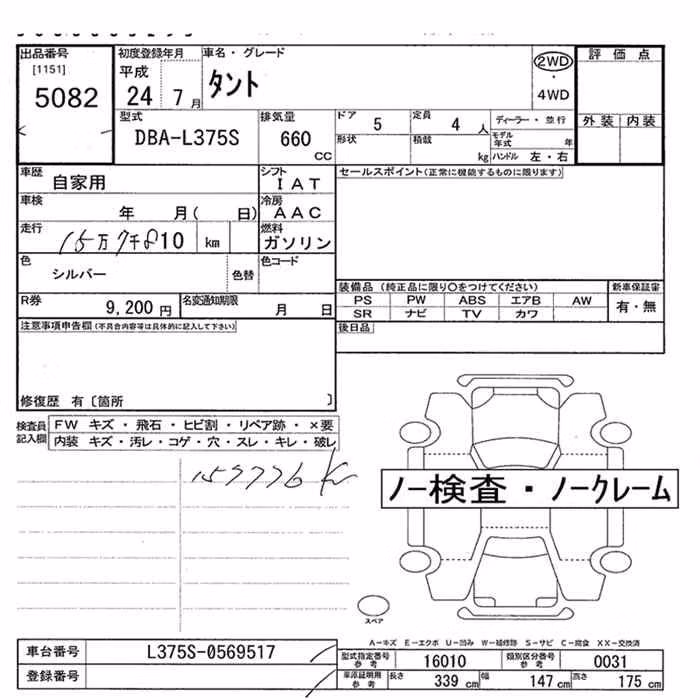 出品番号 初度登録年月 車名・グレード 2WD ・ 4WD 評価点
[1151]
5082 平成 24 7月 タント
型式 排気量 ドア 5 定員 4人 ディーラー・並行 外装 内装
DBA-L375S 660 CC 形状 積載 kg モデル年式 年
ハンドル 左・右
車歴 自家用 シフト IAT セールスポイント(正常に機能するものに限ります)
車検 年 月( 日) 冷房 AAC
走行 15万7千810 km 燃料 ガソリン
色 シルバー 色替 色コード
装備品(純正品に限り○をつけてください) 新車保証書
R券 9,200円 名変通知期限 月 日 PS PW ABS エアB AW 有・無
SR ナビ TV カワ
注意事項申告欄(不具合内容等は具体的に記入して下さい) 後日品
修復歴 有〔箇所 〕
検査員記入欄 FW キズ・飛石・ヒビ割・リペア跡・×要
内装 キズ・汚レ・コゲ・穴・スレ・キレ・破レ
157776 km
ノー検査・ノークレーム
スペア
A-キズ E-エクボ U-凹み W-補修跡 S-サビ C-腐食 XX-交換済
車台番号 L375S-0569517 型式指定番号 参考 16010 類別区分番号 参考 0031
登録番号 車庫証明用 参考 長さ 339 cm 幅 147 cm 高さ 175 cm